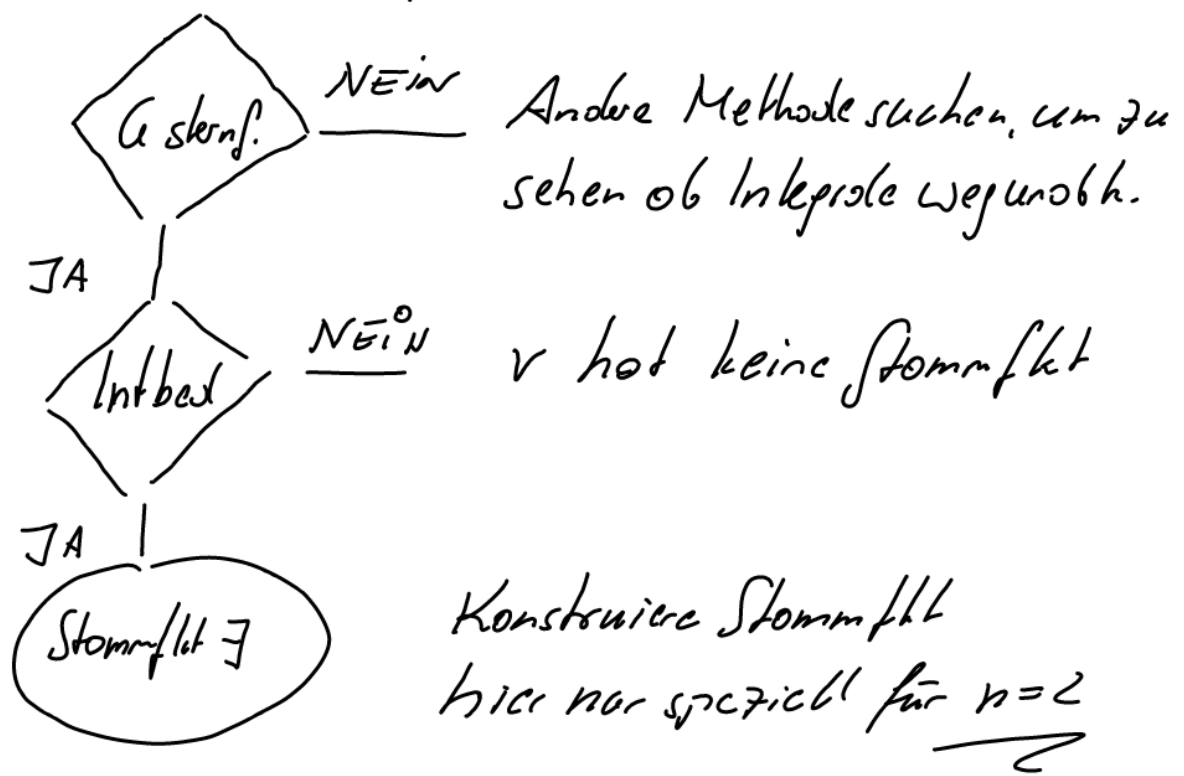 G sternf.
NEIN
Andere Methode suchen, um zu
sehen ob Integrale wegunabh.
JA
Intbed
NEIN
v hat keine Stammfkt
JA
Stammfkt ∃
Konstruiere Stammfkt
hier nur speziell für n=2